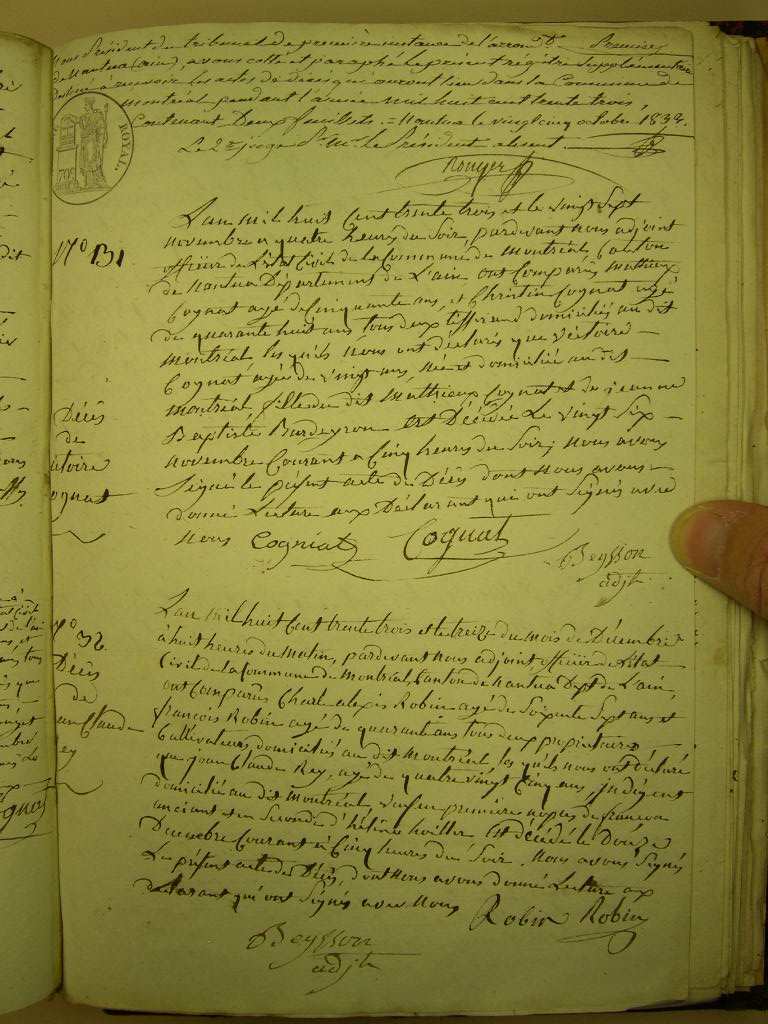 Nous Président du tribunal de première instance de l'arrond.t Premier
de Nantua (ain), avons cotté et paraphé le présent régistre Supplémentaire
destiné a recevoir les actes de décès qui auront lieu dans la Commune de
Montréal pendant l'année mil huit cent trente trois,
Contenant Deux feuillets. = Nantua le vingt cinq octobre 1833.
Le 2e juge pr. Mr. le Président absent.
Rouyer
ROYAL.
N° 31
Décès
de
Cognat
L'an mil huit Cent trente trois et le vingt Sept
novembre a quatre heures du Soir, pardevant nous adjoint
officier de L'état Civil de la Commune de Montréal Canton
de Nantua Département de L'ain ont Comparus Mathieux
Cognat agé de Cinquante ans, et Christin Cognat agé
de quarante huit ans tous deux tisserand domiciliés au dit
Montréal les quels Nous ont déclarés que Victoire
Cognat agée de vingt ans, née et domiciliée au dit
Montréal, fille du dit Mathieux Cognat et de jeanne
Baptiste Bardeyron est Décédée Le vingt Six
novembre Courant a Cinq heures du Soir, nous avons
Signé le présent acte de Décès dont Nous avons
donné Lecture aux Déclarant qui ont Signés avec
Nous Cogniat Cognat
Beysson
adjt
N° 32
Décès
de
Jean Claude
Rey
L'an mil huit Cent trente trois et le treize du mois de Décembre
a huit heures du Matin, pardevant nous adjoint officier de L'état
Civil de la Commune de Montréal, Canton de nantua Dept de L'ain,
ont Comparus Charle alexis Robin agé de Soixante Sept ans et
françois Robin agé de quarante ans tous deux propriétaire
Cultivateurs, domiciliés au dit Montréal, les quels nous ont déclaré
que jean Claude Rey, agé de quatre vingt Cinq ans, Indigent
domicilié au dit Montréal, veuf en première nopces de
et en Seconde est décédé le Douze
Décembre Courant a Cinq heures du Soir. Nous avons Signés
Le présent acte de Décès, dont Nous avons donné Lecture aux
déclarant qui ont Signés avec Nous Robin Robin
Beysson
adjt